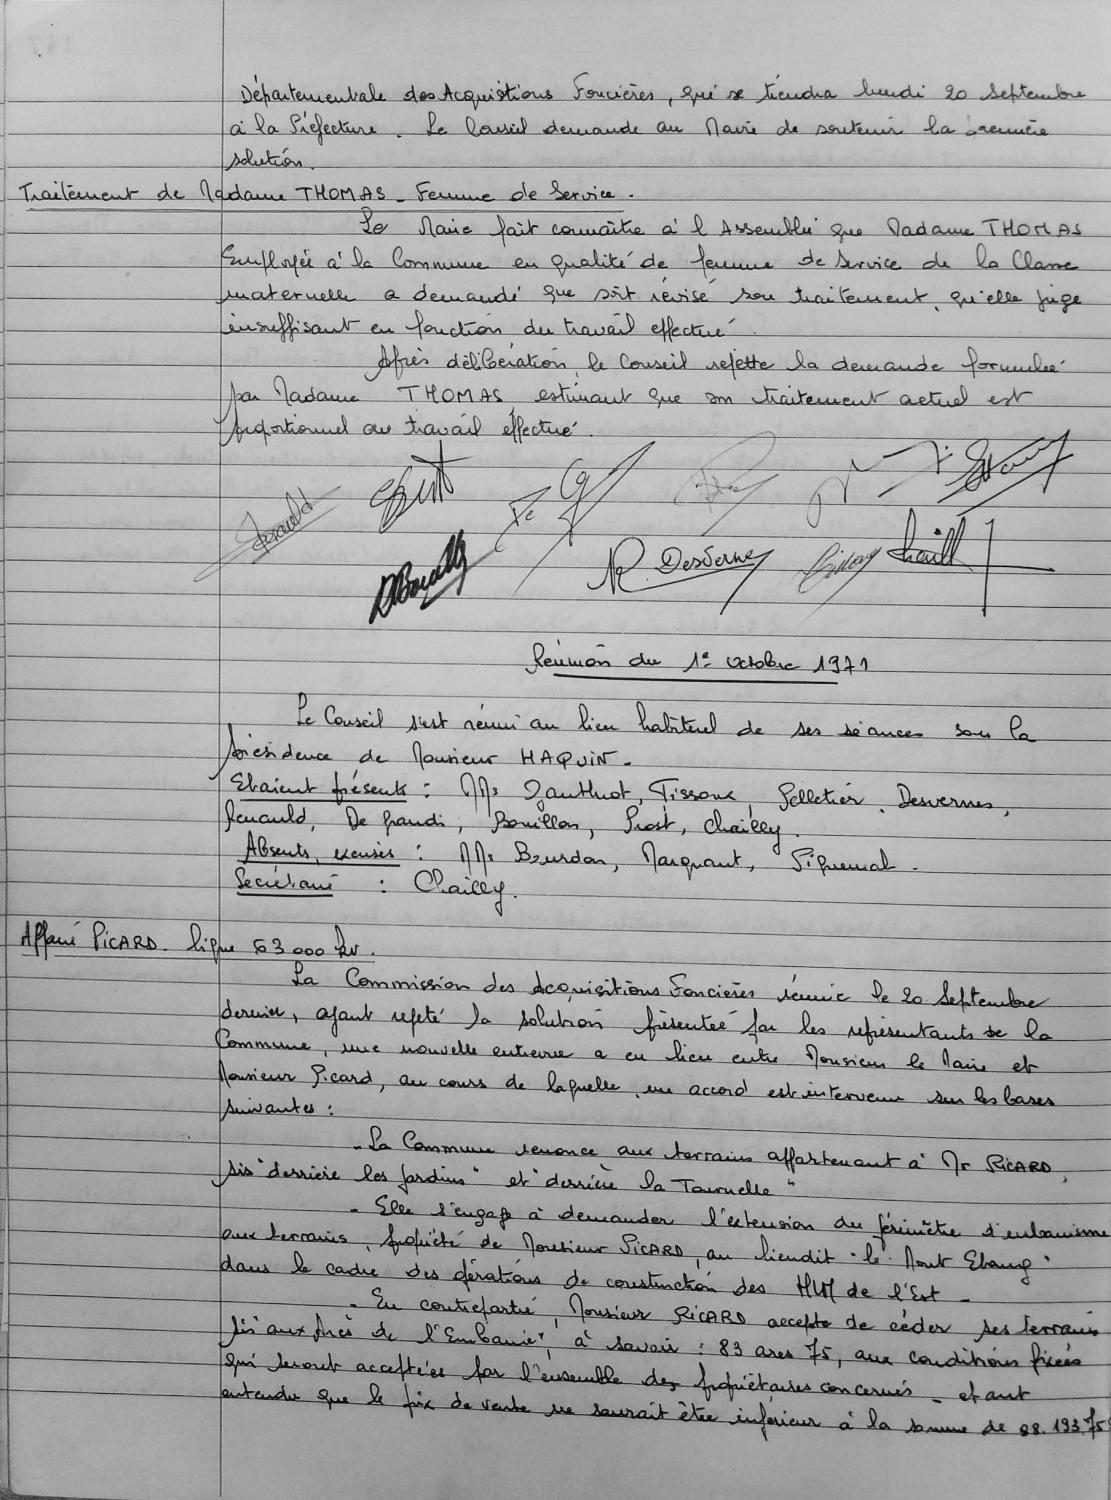 Départementale des Acquisitions Foncières, qui se tiendra lundi 20 Septembre
à la Préfecture. Le Conseil demande au Maire de soutenir la première
solution.
Traitement de Madame THOMAS - Femme de Service.
Le Maire fait connaître à l'Assemblée que Madame THOMAS
Employée à la Commune en qualité de femme de Service de la Classe
maternelle a demandé que soit révisé son traitement, qu'elle juge
insuffisant en fonction du travail effectué.
Après délibération, le Conseil rejette la demande formulée
par Madame THOMAS estimant que son traitement actuel est
proportionnel au travail effectué.
Renauld
Desvernes
Chailly
Réunion du 1e Octobre 1971
Le Conseil s'est réuni au lieu habituel de ses séances sous la
présidence de Monsieur HAQUIN.
Etaient présents : MMs Gauthiot, Tissoux, Pelletier, Desvernes,
Renauld, De Grandi, Bouillon, Prost, Chailly.
Absents, excusés : MMs Bourdon, Marquant, Piquemal.
Secrétaire : Chailly.
Affaire PICARD. ligne 63 000 kv.
La Commission des Acquisitions Foncières réunie le 20 Septembre
dernier, ayant rejeté la solution présentée par les représentants de la
Commune, une nouvelle entrevue a eu lieu entre Monsieur le Maire et
Monsieur Picard, au cours de laquelle, un accord est intervenu sur les bases
suivantes :
- La Commune renonce aux terrains appartenant à Mr PICARD,
sis "derrière les Jardins" et "derrière la Tournelle"
- Elle s'engage à demander l'extension du périmètre d'urbanisme
aux terrains, propriété de Monsieur PICARD, au lieudit "le Mont Ebang"
dans le cadre des opérations de construction des HLM de l'Est -
- En contrepartie, Monsieur PICARD accepte de céder ses terrains
sis "aux prés de l'Embanie", à savoir : 83 ares 75, aux conditions fixées
qui seront acceptées par l'ensemble des propriétaires concernés - étant
entendu que le prix de vente ne saurait être inférieur à la somme de 88.193.75